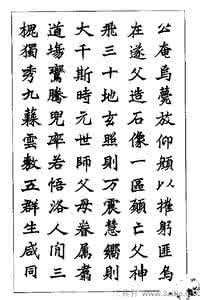 公庵焉薨放仰顏以摧躬匪烏
在遂父造石像一區願亡父神
飛三十地玄照則万震慧嚮則
大千斯時元世師父母眷屬翥
道場鸞騰兜率若悟洛人間三
槐獨秀九蕀雲敷五群生咸同